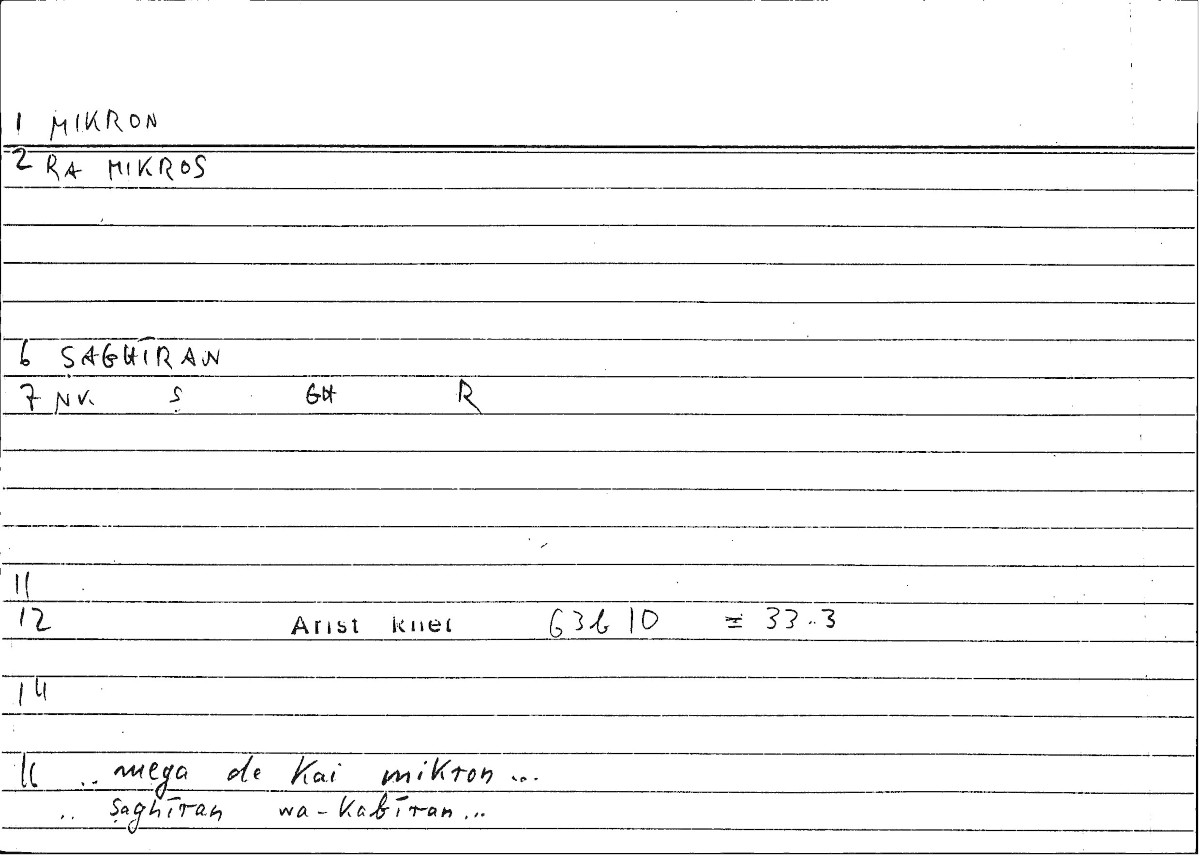 1 MIKRON
2 RA MIKROS
6 ṢAGHĪRAN
7 NV. Ṣ GH R
11
12 Arist Rhet 63b10 = 33.3
14
16 .. mega de kai mikron ...
.. ṣaghīran wa-kabīran ...